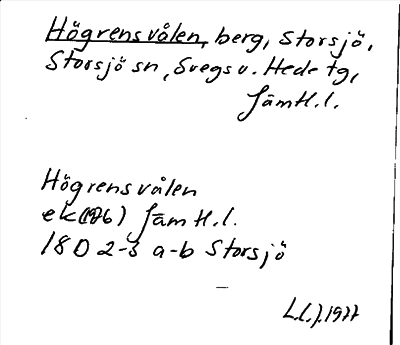 Högrensvålen, berg, Storsjö,
Storsjö sn, Svegs o. Hede tg,
Jämtl.l.
Högrensvålen
ek(1926) Jämtl.l.
18D 2-3 a-b Storsjö
L.L.J. 1977